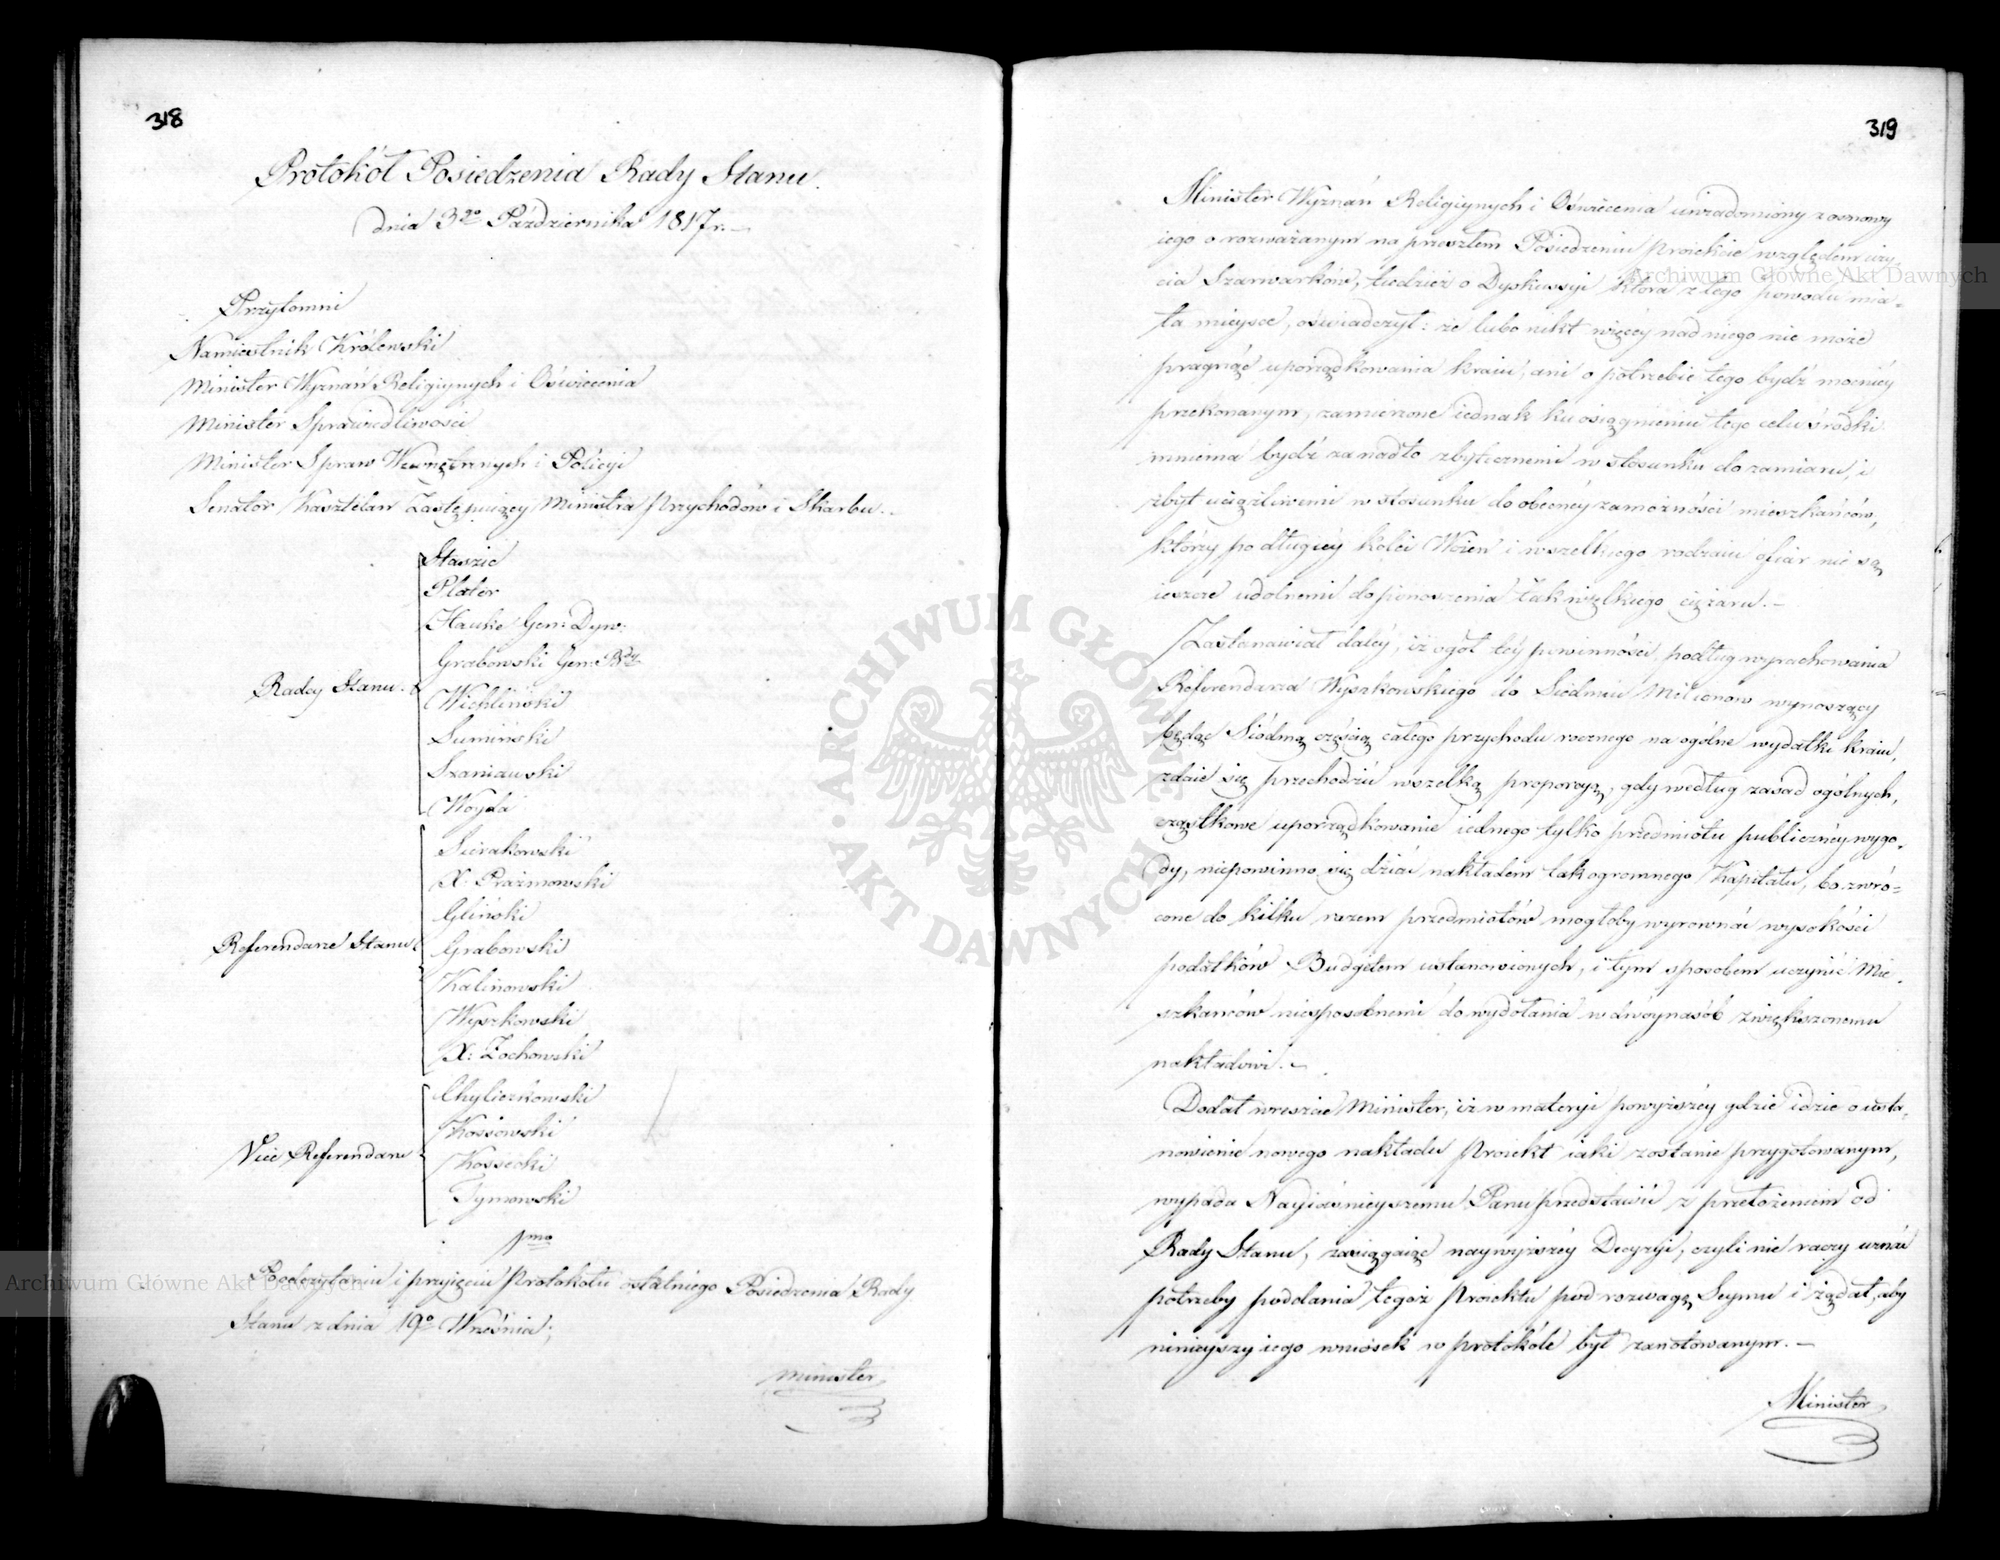 318
Protokół Posiedzenia Rady Stanu.
dnia 3go Października 1817 r. —
Przytomni
Namiestnik Królewski
Minister Wyznań Religiynych i Oświecenia
Minister Sprawiedliwości
Minister Spraw Wewnętrznych i Policyi
Senator Kasztelan Zastępuiący Ministra Przychodów i Skarbu. -
Radcy Stanu.
Staszic
Plater
Hauke Gen: Dyw:
Grabowski Gen: Bdy
Wichliński
Sumiński
Szaniawski
Woyda
Referendarze Stanu
Sierakowski
X: Prażmowski
Gliński
Grabowski
Kalinowski
Wyszkowski
X: Żochowski
Vice Referendarze
Chyliczkowski
Kossowski
Kossecki
Tymowski
1mo
Po odczytaniu i przyięciu Protokołu ostatniego Posiedzenia Rady
Stanu z dnia 19o Września;
Minister
319
Minister Wyznań Religiynych i Oświecenia uwiadomiony z osnowy
iego o rozważanym na przeszłem Posiedzeniu Proiekcie względem uży-
cia Szarwarków, tudzież o Dyskussyi która z tego powodu mia-
ła mieysce, oświadczył: że lubo nikt więcéy nad niego nie może
pragnąć uporządkowania kraiu, ani o potrzebie tego bydź mocniéy
przekonanym, zamierzone iednak ku osiągnieniu tego celu środki
mniema bydź zanadto zbytecznemi w stosunku do zamiaru, i
zbyt uciążliwemi w stosunku do obecnéy zamożności mieszkańców,
którzy po długiéy kolei Woien i wszelkiego rodzaiu ofiar nie są
ieszcze udolnemi do ponoszenia tak wielkiego ciężaru. —
Zastanawiał daléy, iż ogół téy powinności, podług wyrachowania
Referendarza Wyszkowskiego do Siedmiu Milionów wynoszący
będąc Siódmą częścią całego przychodu rocznego na ogólne wydatki kraiu,
zdaie się przechodzić wszelką proporcyą, gdy według zasad ogólnych,
cząstkowe uporządkowanie iednego tylko przedmiotu publicznéy wygo-
dy, niepowinno się dziać nakładem tak ogromnego Kapitału, bo zwró-
cone do kilku razem przedmiotów mogłoby wyrównać wysokości
podatków Budgetem ustanowionych, i tym sposobem uczynić Mie-
szkańców niesposobnemi do wydołania w dwóynasób zwiększonemu
nakładowi. —
Dodał wreszcie Minister, iż w materyi powyższéy gdzie idzie o usta-
nowienie nowego nakładu Proiekt iaki zostanie przygotowanym,
wypada Nayiaśnieyszemu Panu przedstawić z przełożeniem od
Rady Stanu, zasięgaiąc naywyższéy Decyzyi, czyli nie raczy uznać
potrzeby poddania tegoż Proiektu pod rozwagę Seymu i żądał, aby
ninieyszy iego wniosek w protokóle był zanotowanym. —
Minister
Archiwum Główne Akt Dawnych
Archiwum Główne Akt Dawnych
ARCHIWUM GŁÓWNE · AKT DAWNYCH ·